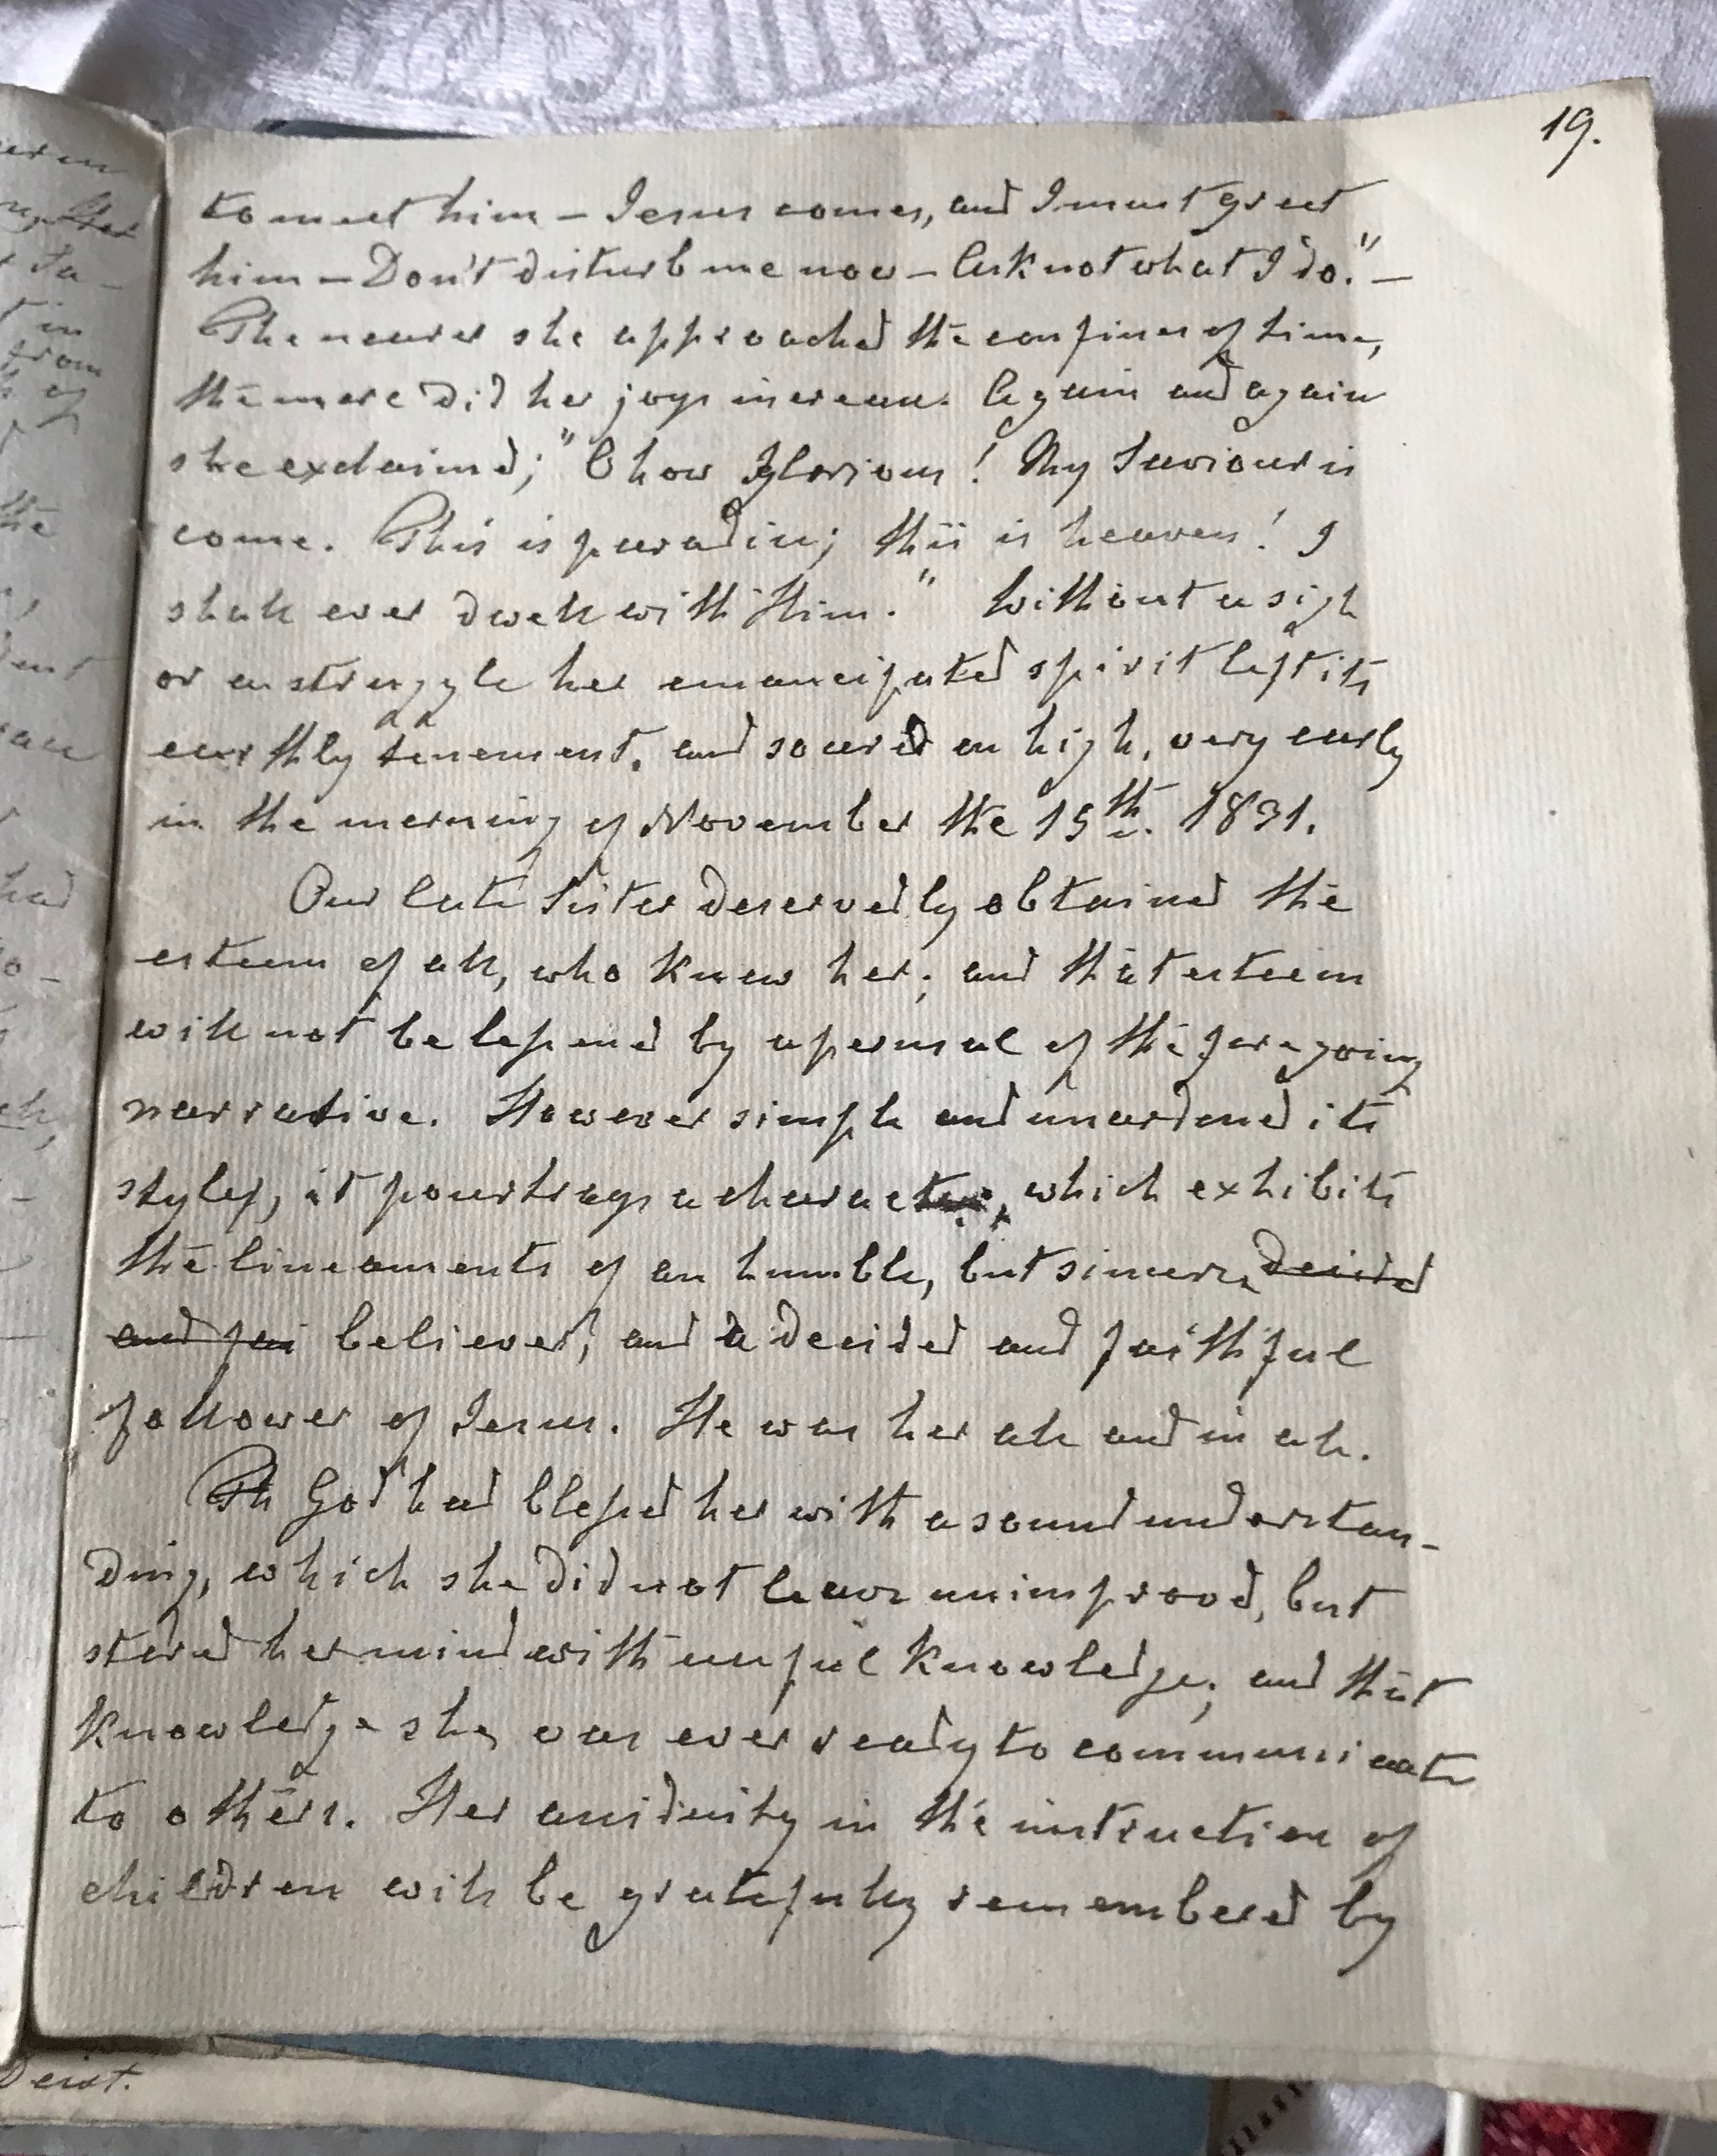 19.
to meet him – Jesus comes, and I must greet
him – Don't disturb me now – Ask not what I do." –
The nearer she approached the confines of time,
the more did her joys increase. Again and again
she exclaimed; "O how glorious! My Saviour is
come. This is paradise; this is heaven! I
shall ever dwell with Him." Without a sigh
or a struggle her emancipated spirit left its
earthly tenement, and soared on high, very early
in the morning of November the 15th. 1831.
Our late Sister deservedly obtained the
esteem of all, who knew her; and that esteem
will not be lessened by a perusal of the foregoing
narrative. However simple and unadorned its
style, it pourtrays a character, which exhibits
the lineaments of an humble, but sincere, decided
and fai believer, and a decided and faithful
follower of Jesus. He was her all and in all.
Th God had blessed her with a sound understan-
ding, which she did not leave unimproved, but
stored her mind with useful knowledge; and that
knowledge she was ever ready to communicate
to others. Her assiduity in the instruction of
children will be gratefully remembered by
from
the
had
Deist.